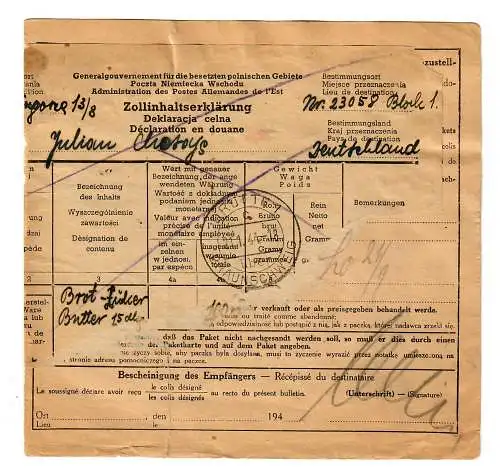 Generalgouvernement für die besetzten polnischen Gebiete
Poczta Niemiecka Wschodu
Administration des Postes Allemandes de l'Est
Zollinhaltserklärung
Deklaracja celna
Déclaration en douane
Bestimmungsort
Miejsce przeznaczenia
Lieu de destination
Nr. 23058 Block 1.
Bestimmungsland
Kraj przeznaczenia
Pays de destination
Deutschland
zustell-
13/8
Julian
Bezeichnung
des Inhalts
Wyszczególnienie
zawartości
Désignation de
contenu
Wert mit genauer
Bezeichnung, der ange
wendeten Währung
Wartość z dokładnem
podaniem jednostki
monetarnej
Valeur avec indication
précise de l'unité
monétaire employée
im ein-
zelnen
w jednost.
par espèce
insgesamt
w sumie
totale
Gewicht
Waga
Poids
Roh
Brutto
brut
Gramm
gram
grammes
Rein
Netto
net
Gramm
Bemerkungen
3
4a
BRAUNSCHWEIG
Brot Zucker
Butter
verkauft oder als preisgegeben behandelt werde.
ou traité comme abandonné:
odpowiedzialność lub postąpić z nią, jak z paczką, której nadawca zrzekł się.
daß das Paket nicht nachgesandt werden soll, so muß er dies durch einen
der Paketkarte und auf dem Paket angeben.
nie życzy sobie, aby paczka była dosyłana, musi to życzenie wyrazić przez notatkę umieszczoną na
stronie adresu pomocniczego i na paczce.
Bescheinigung des Empfängers — Récépissé du destinataire
Le soussigné déclare avoir reçu
le colis désigné
les colis désignés
au recto du présent bulletin.
(Unterschrift) — (Signature)
Ort
Lieu
, den
le
194